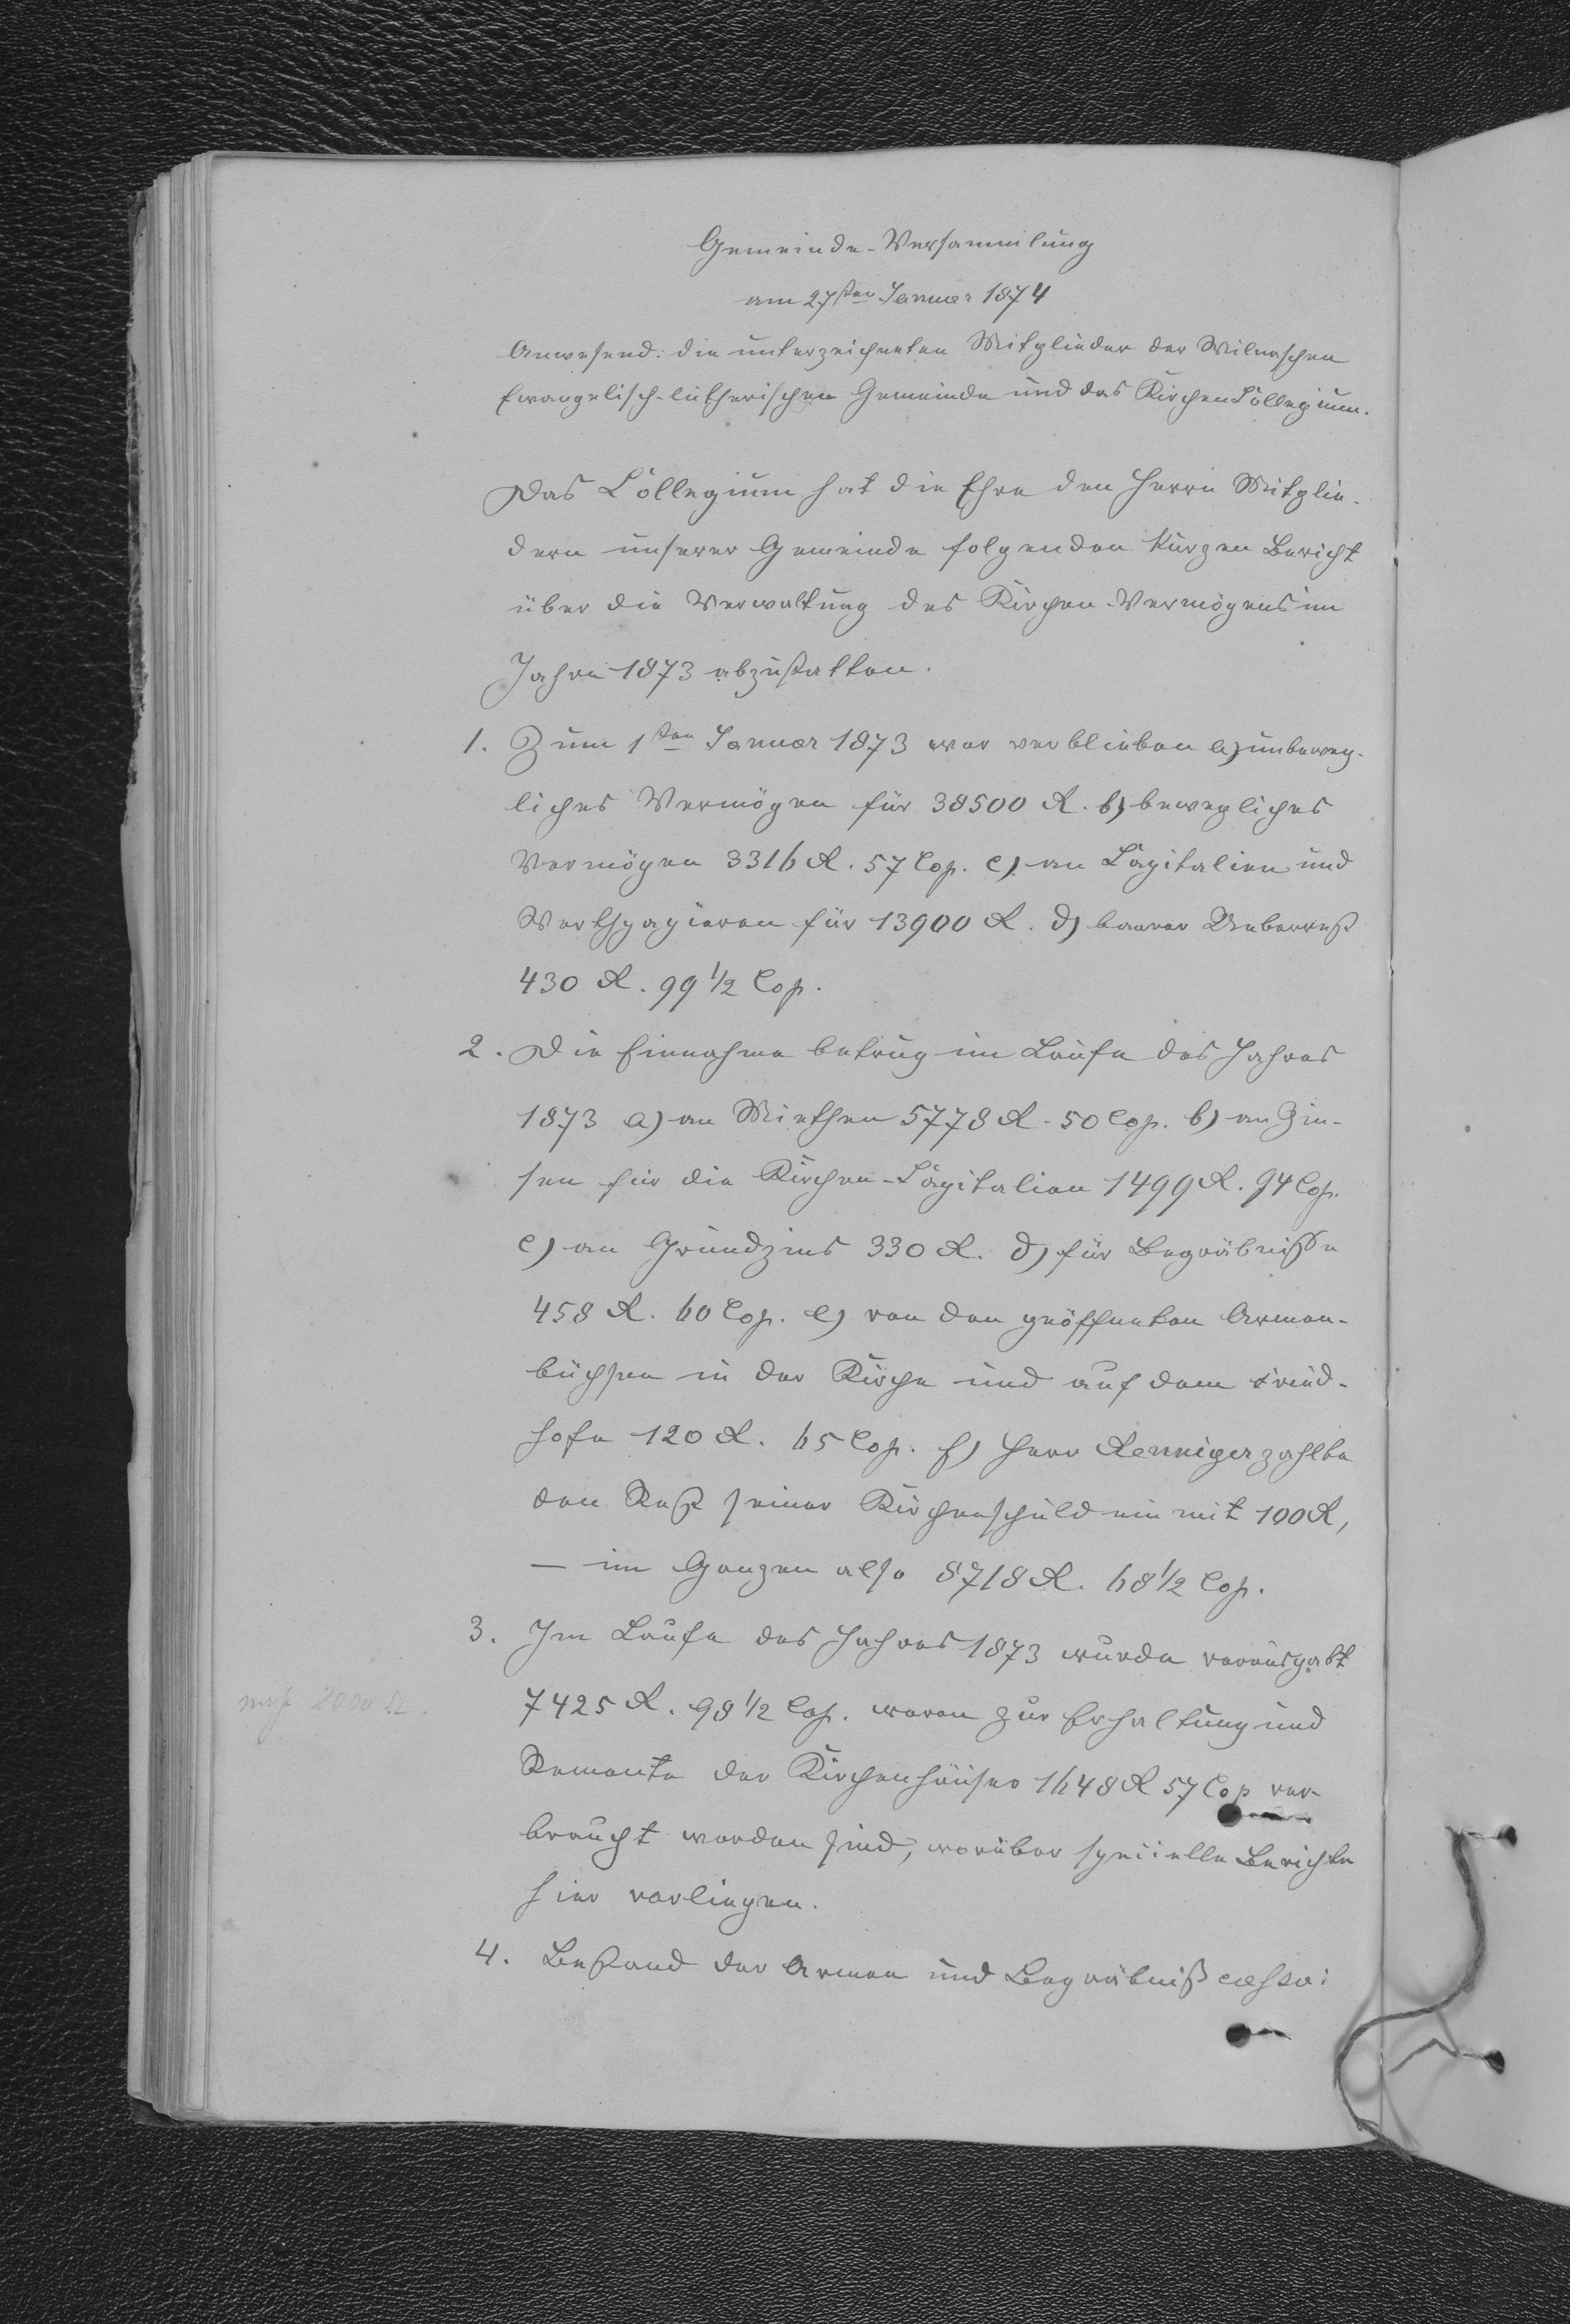 Gemeinde-Versammlung
am 27sten Januar 1874
Anwesend: die unterzeichneten Mitglieder der Wilnaschen
Evangelisch-lutherischen Gemeinde und das Kirchen Collegium.
Das Collegium hat die Ehre den Herrn Mitglie-
dern unserer Gemeinde folgenden kurzen Bericht
über die Verwaltung des Kirchen-Vermögens im
Jahre 1873 abzustatten.
1. Zum 1sten Januar 1873 war verblieben a) unbeweg-
liches Vermögen für 38500 R. b) bewegliches
Vermögen 3316 R. 57 Cop. c) an Capitalien und
Werthpapieren für 13900 R. d) baarer Ueberrest
430 R. 99 1/2 Cop.
2. Die Einnahme betrug im Laufe des Jahres
1873 a) an Miethen 5778 R. 50 Cop. b) an Zin-
sen für die Kirchen-Capitalien 1499 R. 94 Cop.
c) an Grundzins 330 R. d) für Begräbnisse
458 R. 60 Cop. e) von den geöffneten Armen-
büchsen in der Kirche und auf dem Fried-
hofe 120 R. 65 Cop. f) Herr Renniger zahlte
den Rest seiner Kirchenschuld ein mit 100 R,
— im Ganzen also 8718 R. 68 1/2 Cop.
3. Im Laufe des Jahres 1873 wurde verausgabt
7425 R. 98 1/2 Cop. wovon zur Erhaltung und
2000 R.
Remonte der Kirchenhäuser 1648 R 57 Cop ver-
braucht worden sind, worüber specielle Berichte
hier vorliegen.
4. Bestand der Armen und Begräbniß casse: